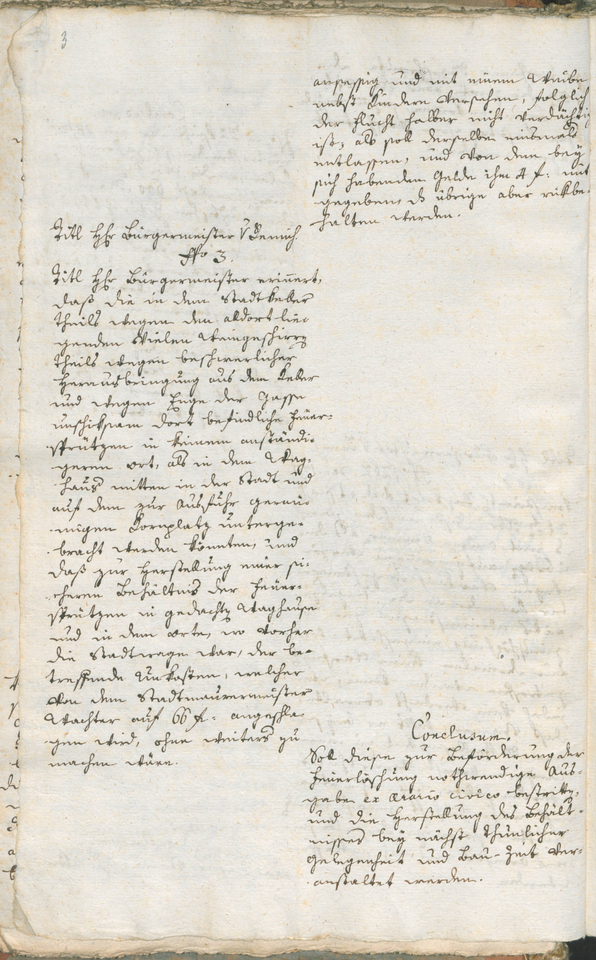 3
anseßig und mit einem Weibe
nebst Kindern versehen, folglich
der Flucht halber nicht verdächtig
ist, als soll derselbe einsmals
entlassen, und von dem bey
sich habenden Gelde ihm 4 f: mit
gegeben, das übrige aber rükbe-
halten werden.
Titl Hr Bürgermeister
No 3.
Titl Hr Bürgermeister erinnert,
daß die in dem Stadtkeller
theils wegen den aldort lie-
genden vielen Weingeschirrn
theils wegen beschwerlicher
Herausbringung aus dem Keller
und wegen Enge der Gasse
unschiksam dort befindliche Feuer-
sprützen in keinem anständi-
gern ort, als in dem Wag-
hauß mitten in der Stadt und
auf dem zur Ausfuhr geräu-
migen Kornplatz unterge-
bracht werden könnten, und
daß zur Herstellung einer si-
cheren Behältnis der Feuer-
sprützen in gedachten Waghause
und in dem orte, wo vorher
die Stadtwage war, der be-
treffende Unkosten, welcher
von dem Stadtmaurermeister
Wachter auf 66 f: angeschla-
gen wird, ohne weiters zu
machen wäre.
Conclusum.
Soll diese zur Beförderung der
Feuerlöschung nothwendige Aus-
gabe ex Ærario civico bestritten,
und die Herstellung des Behält-
nisses bey nächst thunlicher
Gelegenheit und Bau-Zeit ver-
anstaltet werden.